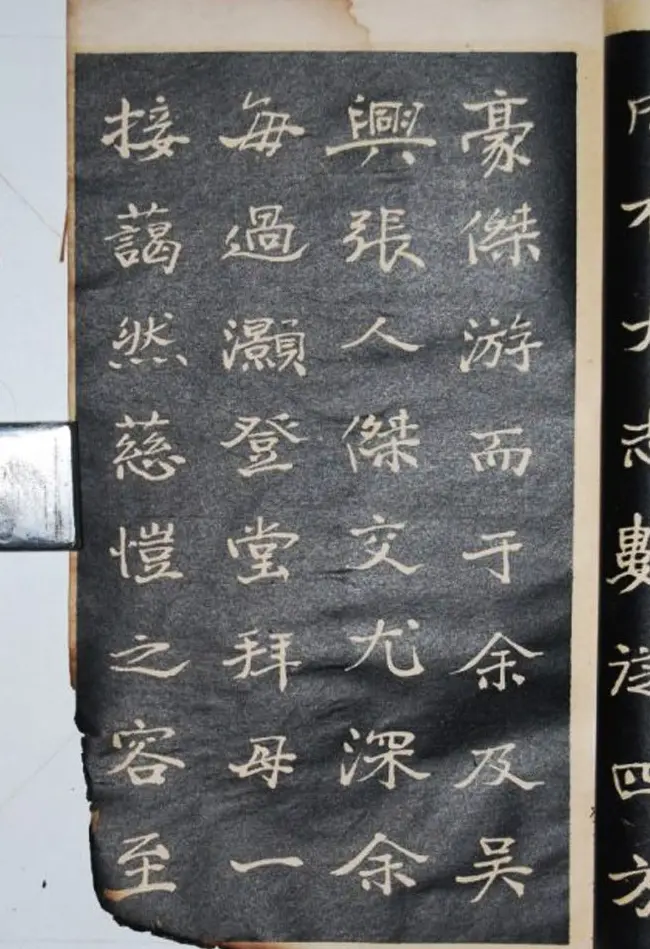 不大志數從四方
豪傑游而于余及吴
興張人傑交尤深余
每過灝登堂拜母一
接藹然慈愷之容至